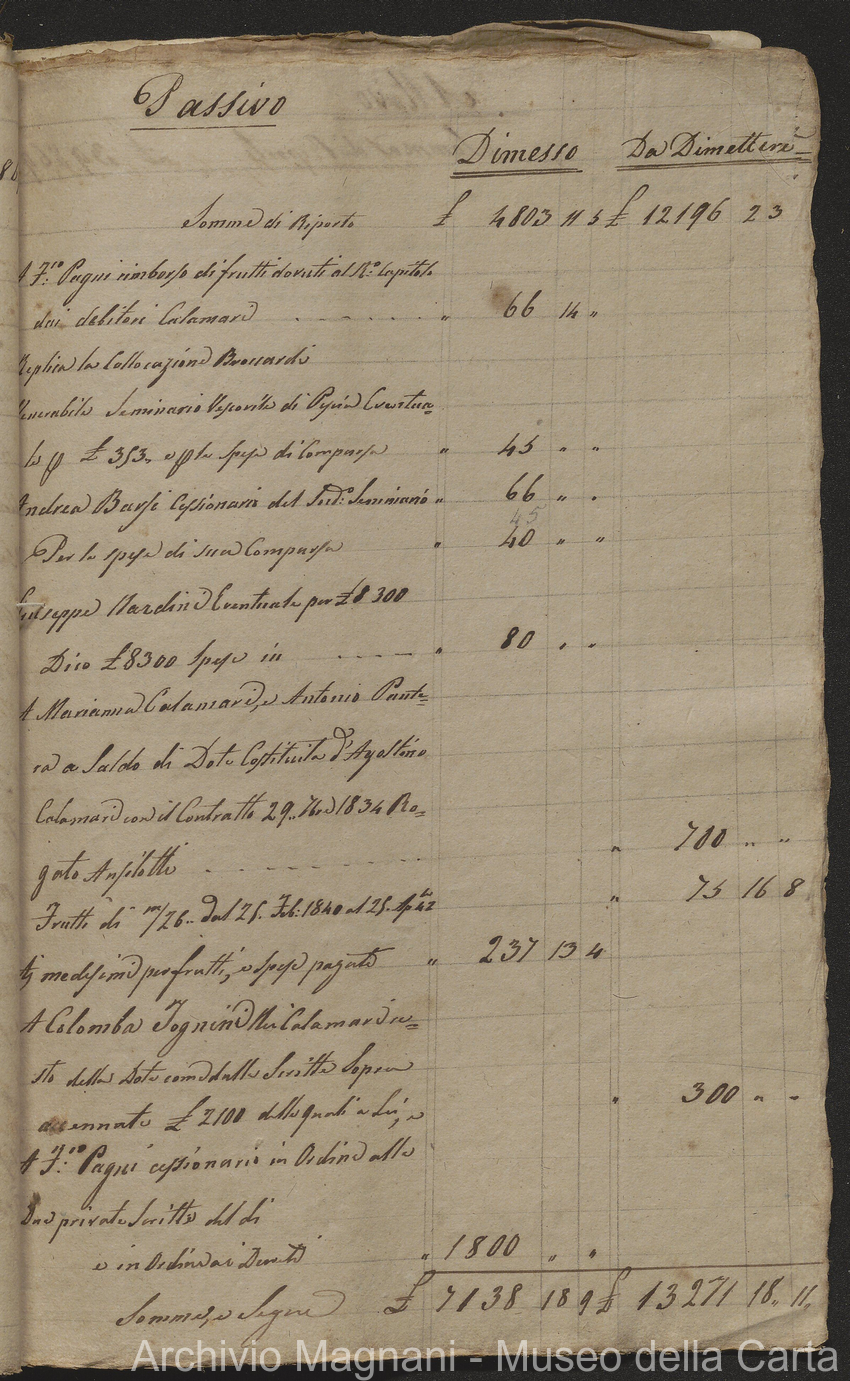 Passivo
Dimesso Da Dimettere
Somme di Riporto £ 4803 11 5 £ 12196 2 3
A F.co Pagni rimborso di frutti dovuti al R.o Capitolo
dai debitori Calamari " 66 14 "
Replica la Collocazione Broccardi
Venerabile Seminario Vescovile di Pescia Eventua=
le p £ 353, e p le spese di Comparsa " 45 " "
Andrea Barsi Cessionario del Sud.o Seminario " 66 " "
45
Per le spese di sua Comparsa " 40 " "
Giuseppe Nardini Eventuale per £ 8300
Dico £ 8300 Spese in " 80 " "
A Marianna Calamari, e Antonio Pante=
ra a Saldo di Dote Costituita d'Agostino
Calamari con il Contratto 29. 7bre 1834 Ro=
gato Anzilotti " 700 " "
Frutti di m/26. dal 25. Feb: 1840 al 25. Ap.le 42 " 75 16 8
Ai medesimi per frutti, e spese pagate " 237 13 4
A Colomba Tognini Calamari re=
sto della Dote come dalle Scritte Sopra
accennate £ 2100 delle quali a Lei, e " 300 " "
A F.co Pagni cessionario in Ordine alle
Due private Scritte del di
e in Ordine ai Decreti " 1800 " "
Somme, e Segue £ 7138 18 9 £ 13271 18 " 11 "
Archivio Magnani - Museo della Carta